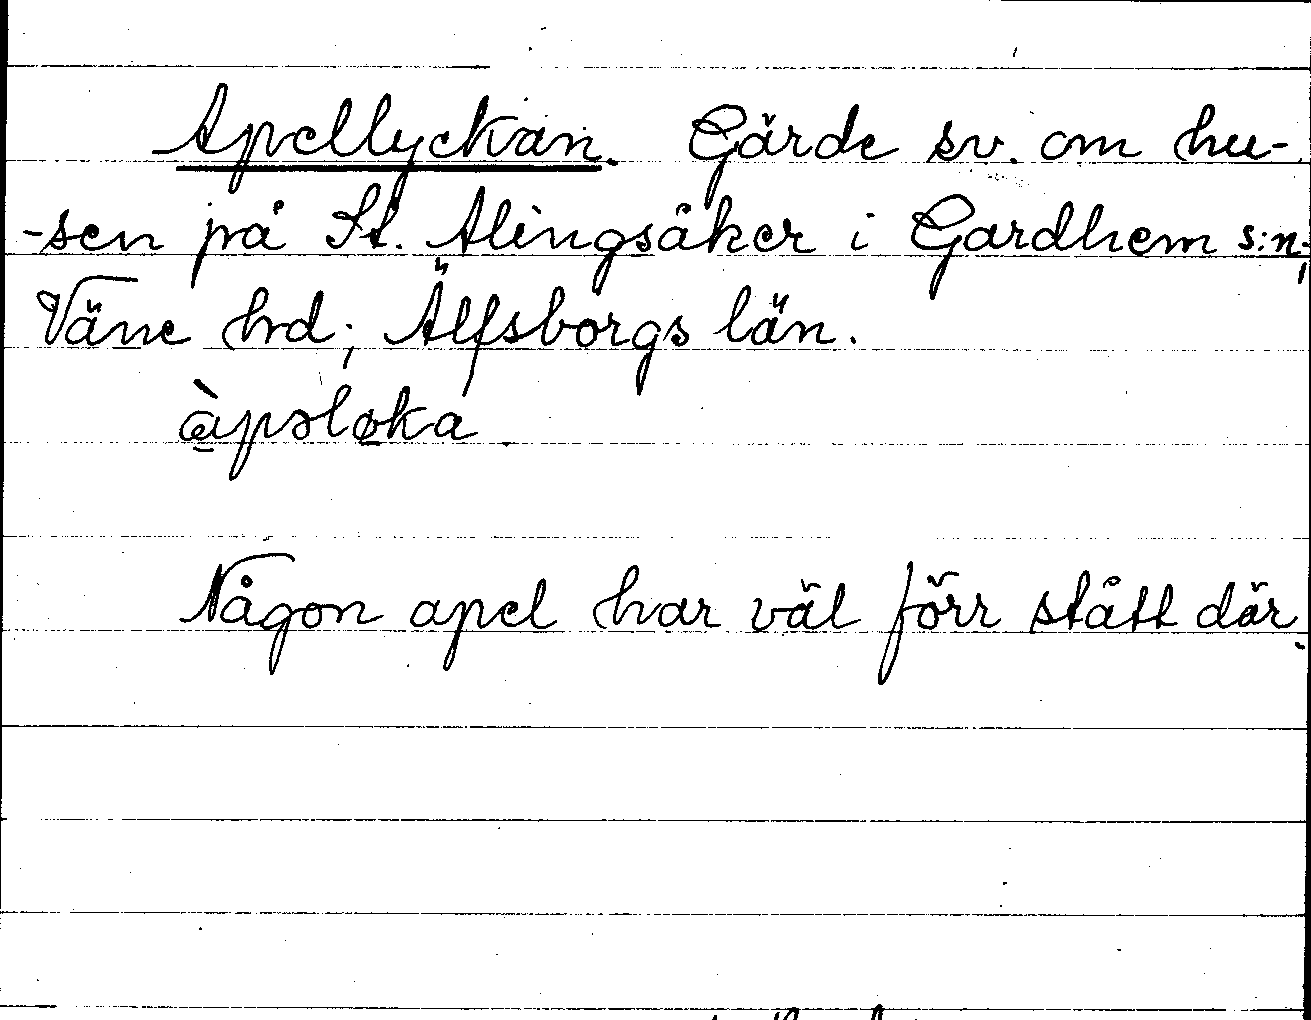 Apellyckan. Gärde sv. om hu-
-sen på St. Alingsåker i Gardhem s:n,
Väne hd; Älfsborgs län.
àpsləka
Någon apel har väl förr stått där.